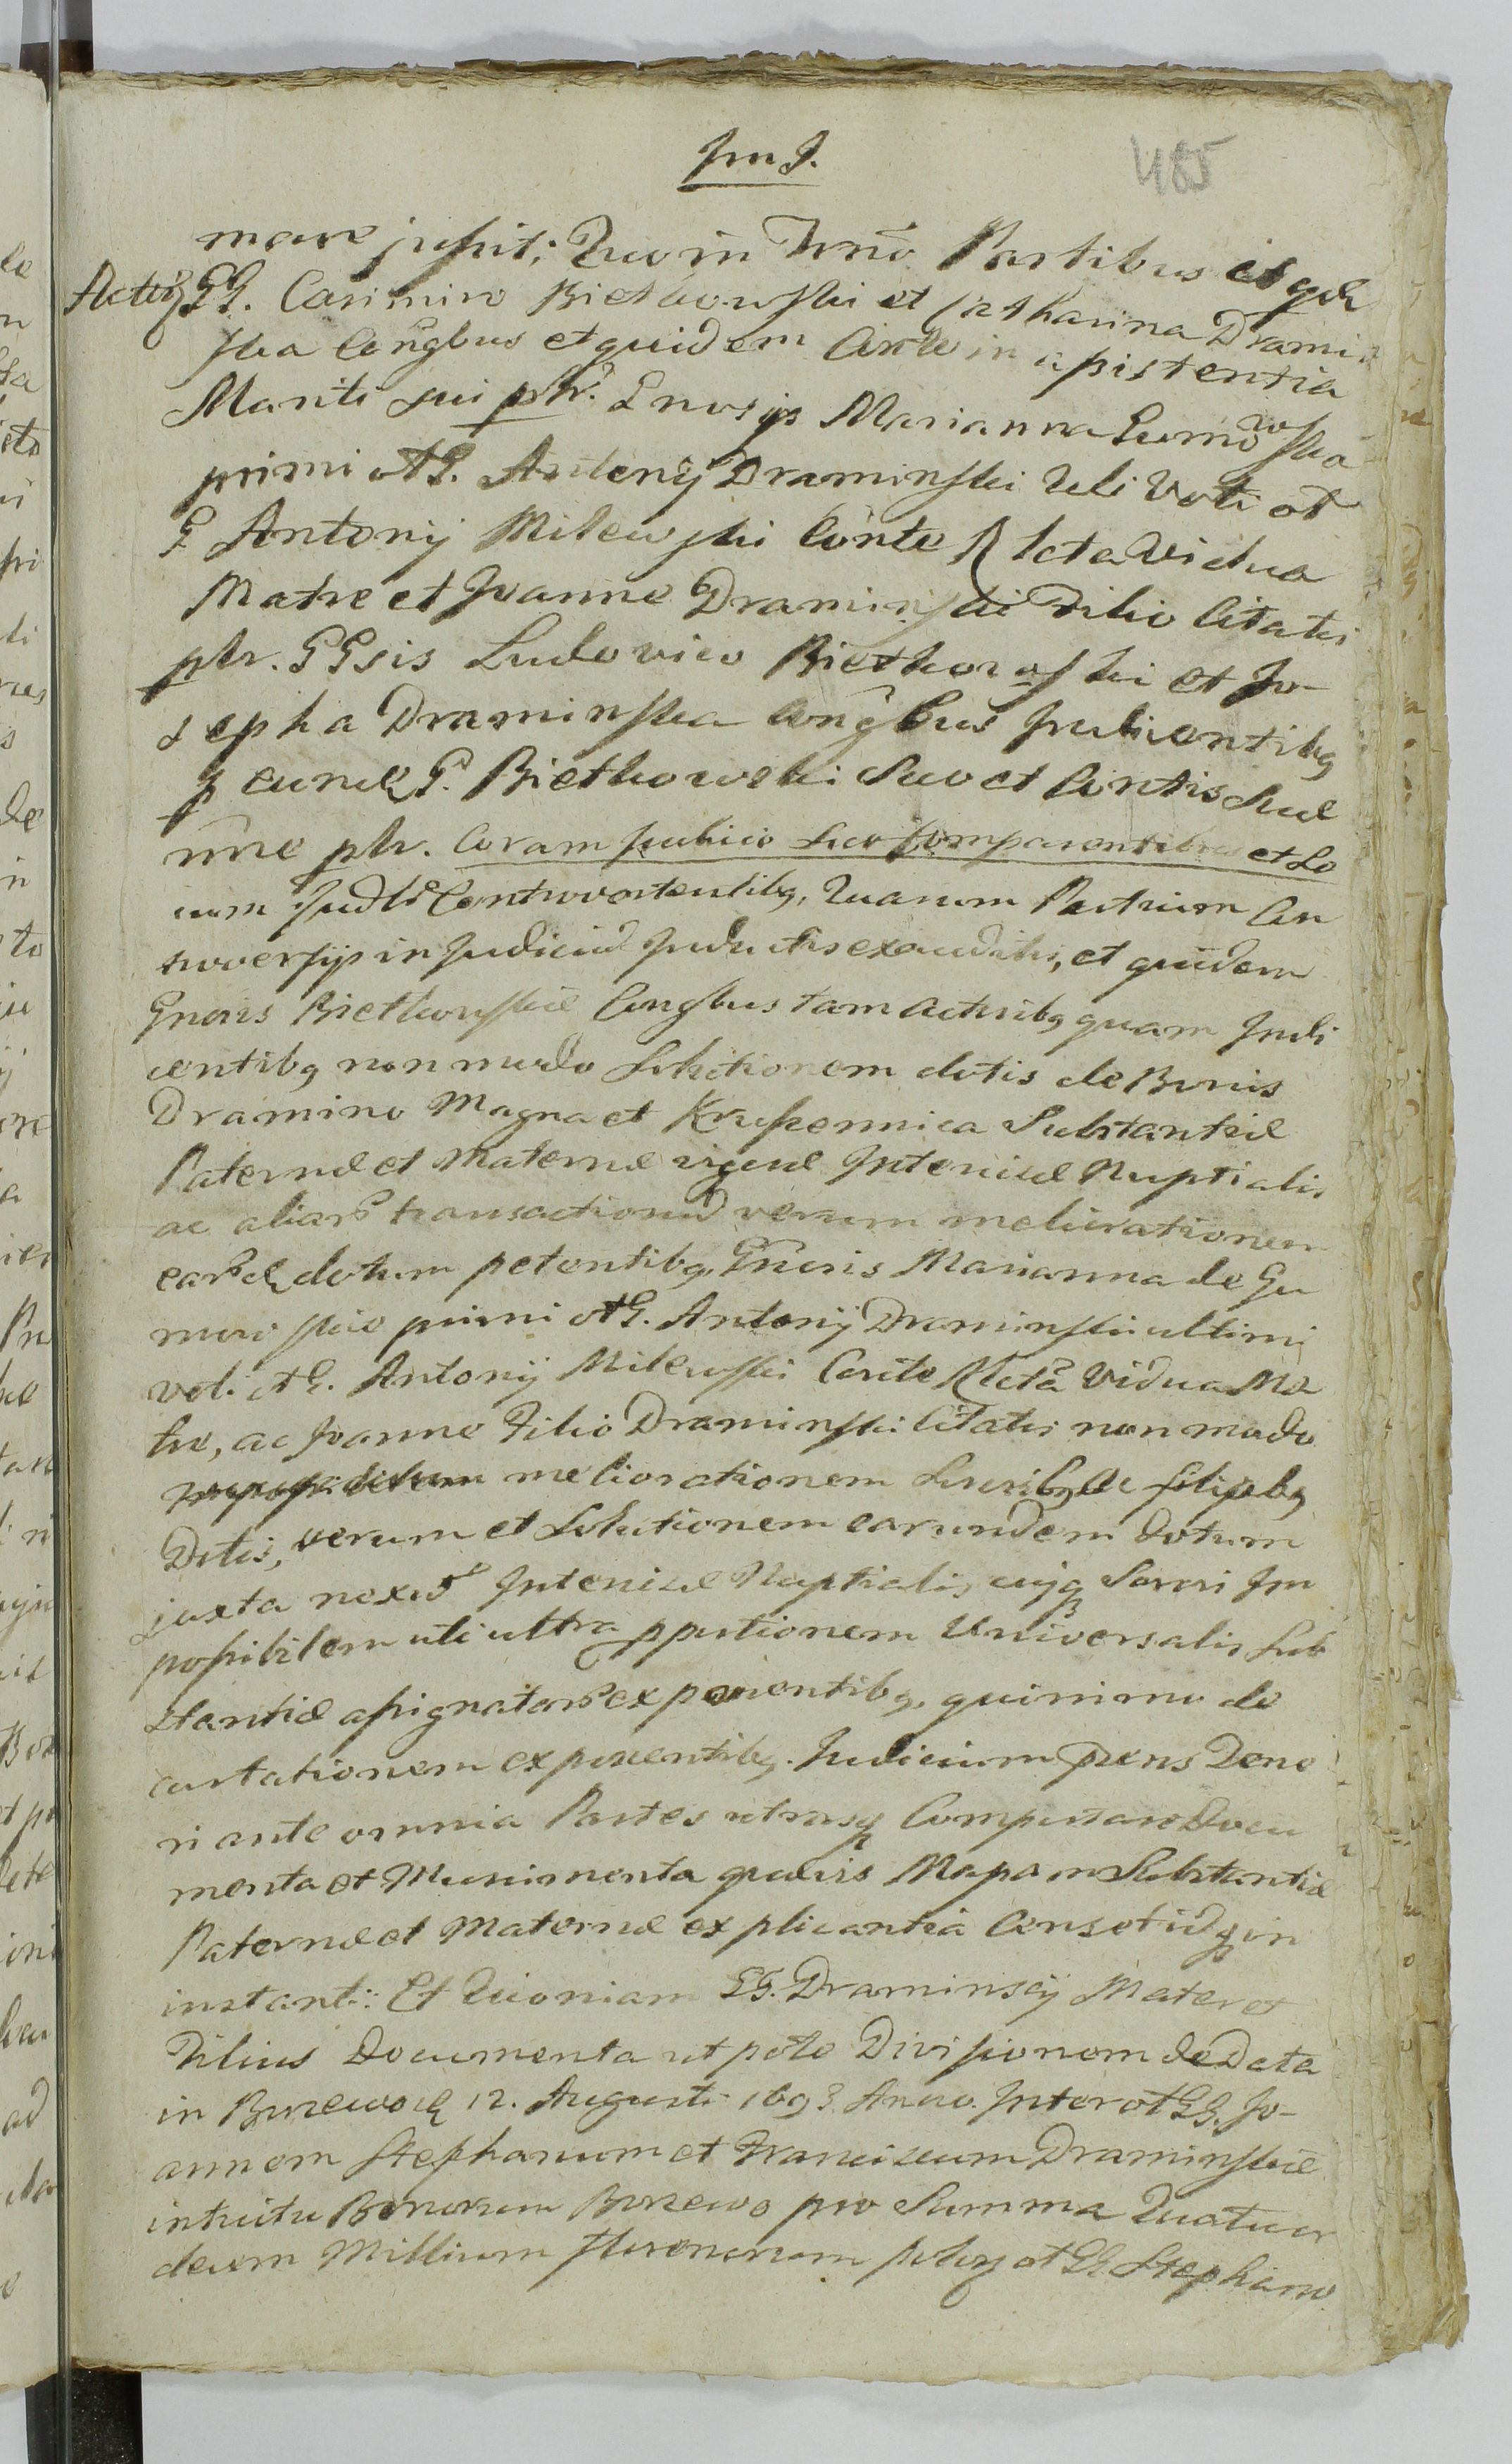 485
mare jussit; Quo in Trno Partibus
GG. Casimiro Bietkowski et Catharina Dramin
ska Congbus et quidem in assistentia
Mariti sui ptr. Marianna Gumowska
primi ol G. Antonij Draminski voti ol
G Antonij Milewski Conte Rlcta Vidua
Matre et Joanne Draminski Filio Citatis
ptr. GGsis Ludovico Bietkowski et Jo-
sepha Draminska Congbus
eund G. Bietkowski Suo et Contis Suæ
nne ptr. Coram Judicio Suo Comparentibus et Lo
cum Judli Controvertentibq, Quarum Partium Con
troversijs in Judiciu Inductis exauditis, et quidem
Gnosis Bietkowskie Congbus tam Actoribq quam Indi
centibq non modo Solutionem dotis de Bonis
Dramino Magna et Substantiæ
Paternæ et Maternæ vigore Intercisæ Nuptialis
ac aliar transactionu verum meliorationem
dotum petentibq, Gnosis Marianna de Gu
mowskie primi ol G. Antonij Draminski ultimi
voti ol G. Antonij Milewski Conte Rlcta Vidua Ma
tre, ac Joanne Filio Draminski Citatis non modo
meliorationem Sororibq ac filiabq
Dotis, verum et Solutionem earundem dotum
juxta nexu Intercisæ Nuptialis cujq Sorori Im
possibilem uti ultra pportionem Universalis Sub
stantiæ assignatar exponentibq, quinimo de
curtationem exponentibq. Judicium præns
ante omnia Partes utrasq Comportare Docu
menta et Munimenta quævis Mapam Substantiæ
Paternæ et Maternæ explicantia Censet idq in
instanti: Et Quoniam GG. Draminscij Mater et
Filius Documenta utpote Divisionem de Data
in 12. Augusti 1693 Anno. Inter ol GG. Jo-
annem Stephanum et Franciscum Draminskie
intuitu Bonorum pro Summa Quatuor
decem Millium Florenorum ol GG Stephano